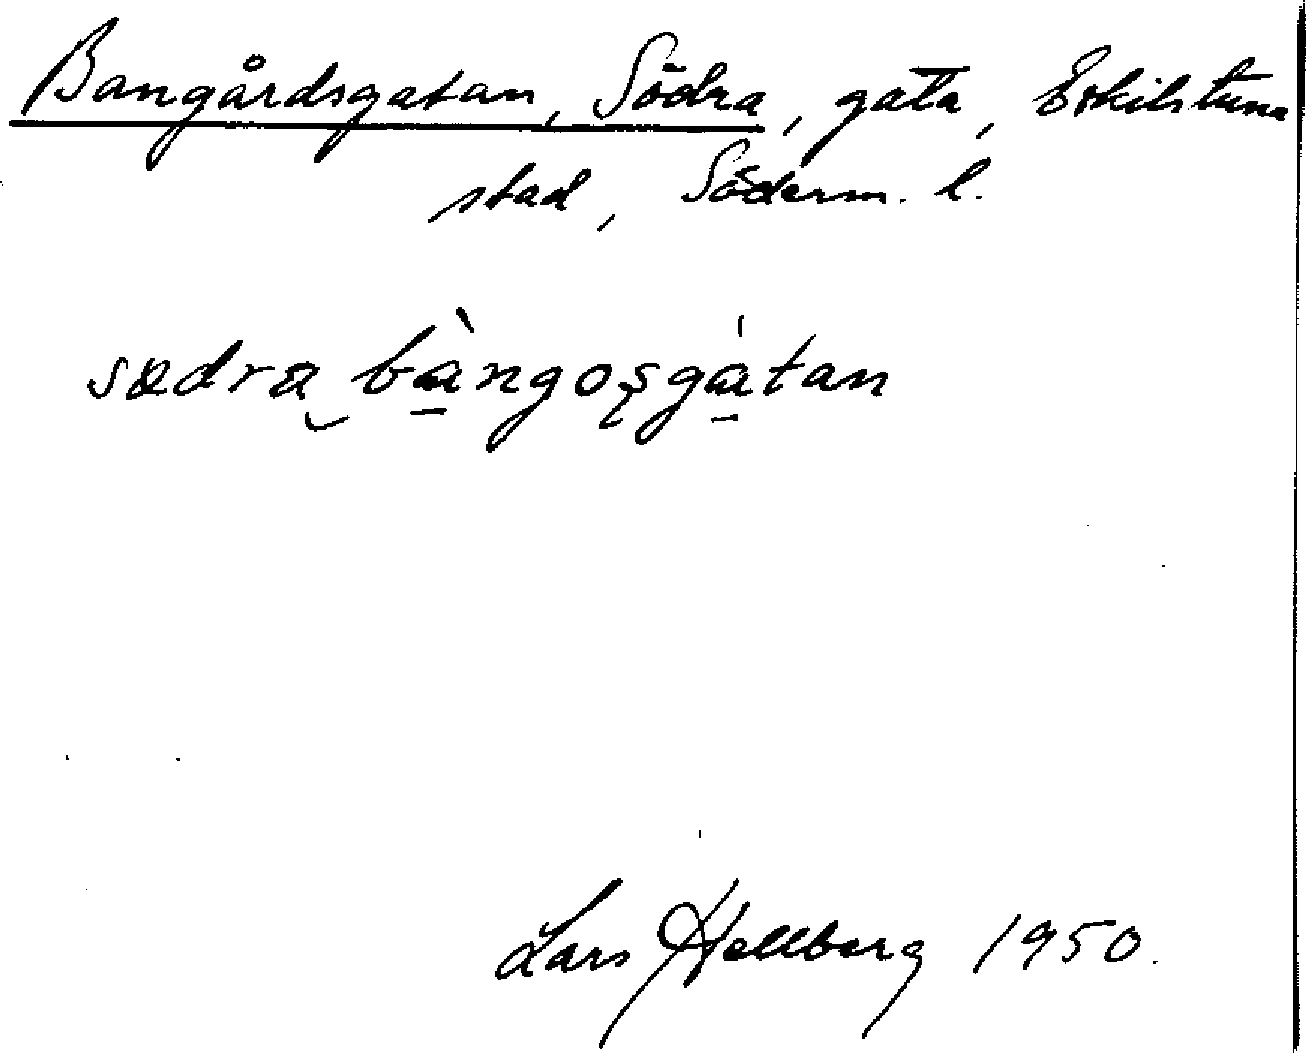 Bangårdsgatan, Södra, gata, Eskilstuna
stad, Söderm. l.
sœdra bàngoşgátan
Lars Hellberg 1950.